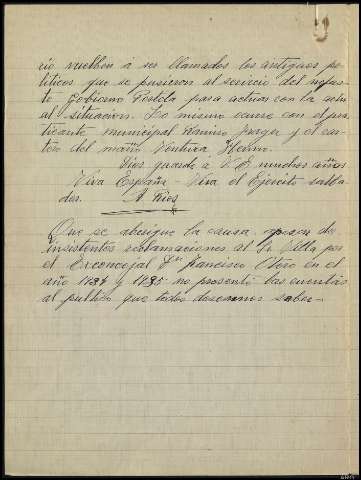 cio vuelben á ser llamados los antiguos po-
líticos que se pusieron al servicio del nefas-
to Gobierno Portela para actuar con la actu
al situación. Lo mismo ocurre con el prac
ticante municipal Ramiro y el car-
tero del Ventura
Dios guarde a V.E. muchos años
Viva España, Viva el Ejército salba-
dor. A Rios
Que se aberigue la causa, apesar de
insistentes reclamaciones al Sr. Villa por
el Exconcejal Dn Francisco Otero en el
año 1934 y 1935 no presentó las cuentas
al publico que todos deseamos saber-